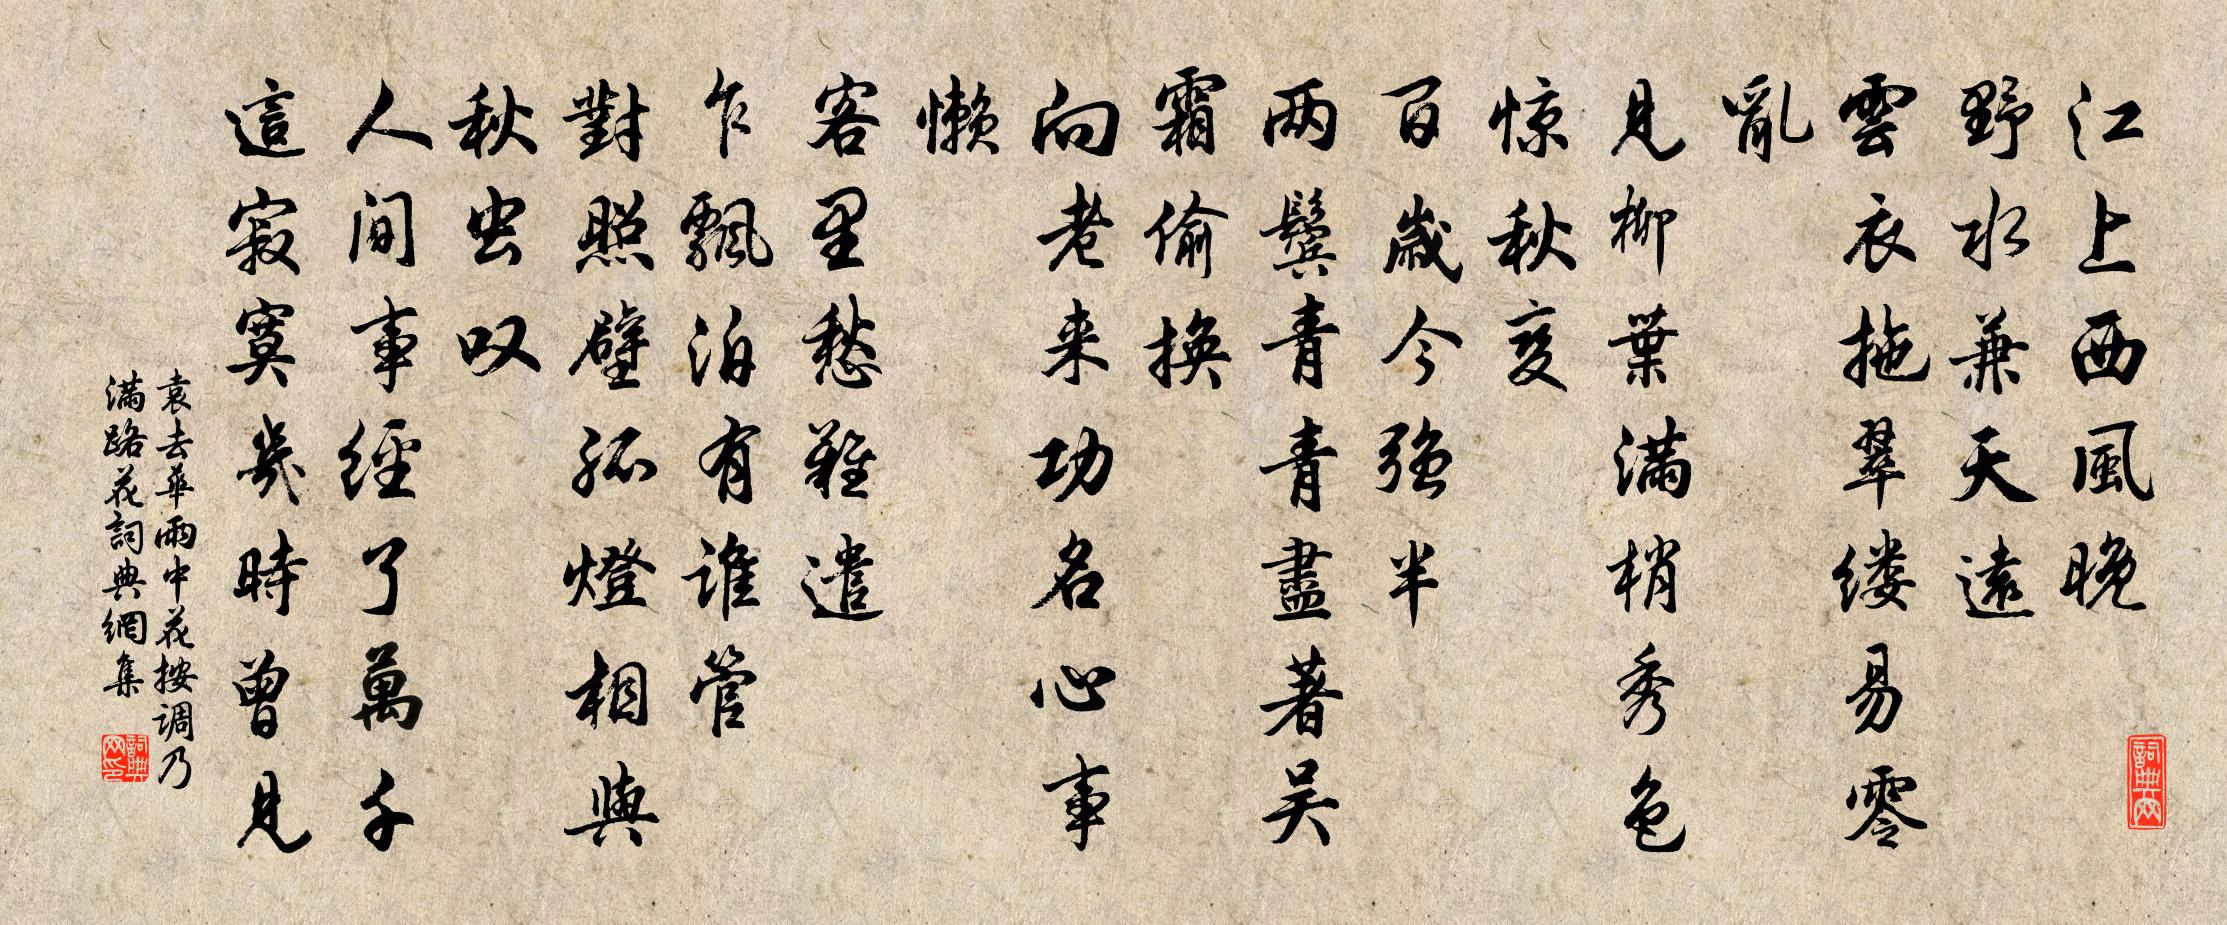 江上西風晚
野水兼天遠
雲衣拖翠缕易零
亂
見柳葉满梢秀色
惊秋变
百歲今强半
两鬓青青盡著吴
霜偷换
向老来功名心事
懒
客里愁難遣
乍飄泊有谁管
對照壁孤燈相與
秋虫叹
人间事經了萬千
這寂寞幾時曾見
袁去華雨中花按调乃
满路花詞典網集
詞典网印
詞典网